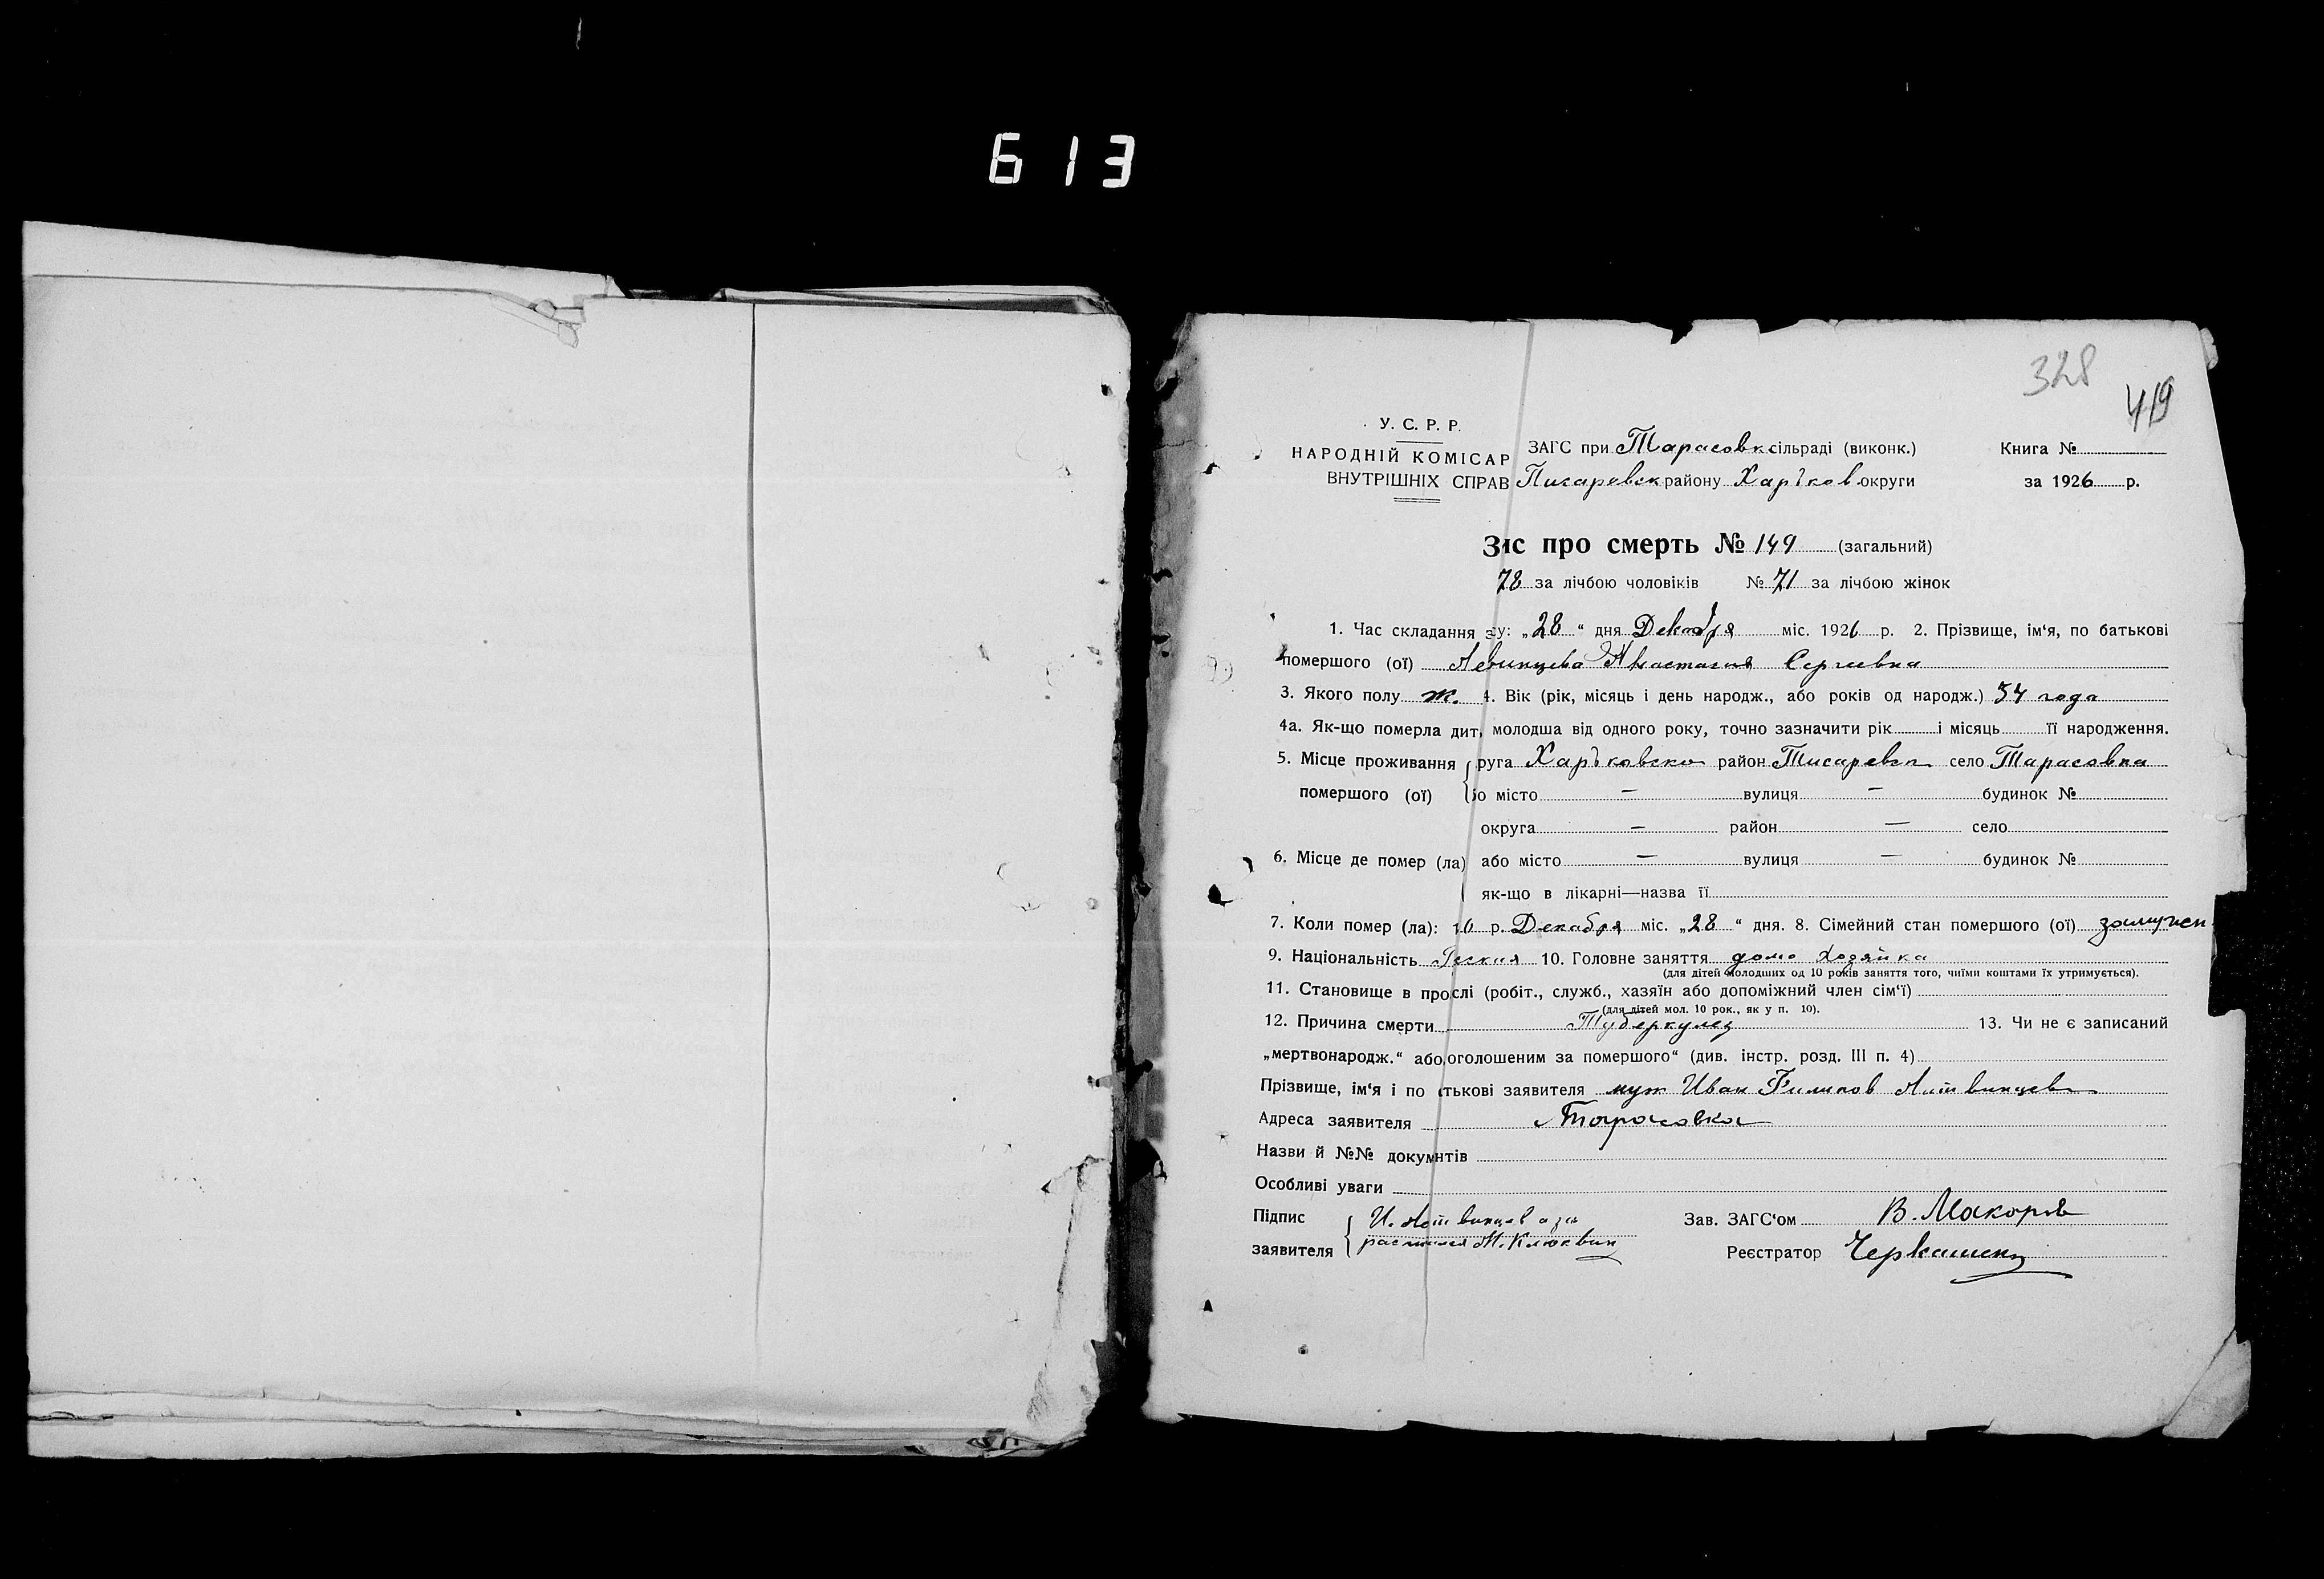 613
328
419
У. С. Р. Р.
НАРОДНІЙ КОМІСАР
ВНУТРІШНІХ СПРАВ
ЗАГС при Тарасовк сільраді (виконк.)
Писаревск району Харьков округи
Книга №
за 1926 р.
З ис про смерть № 149 (загальний)
78 за лічбою чоловіків № 71 за лічбою жінок
1. Час складання з у: „28“ дня Декабря міс. 1926 р. 2. Прізвище, ім'я, по батькові
помершого (ої) Анастасия Сергеевна
3. Якого полу ж. 4. Вік (рік, місяць і день народж., або років од народж.) 54 года
4а. Як-що померла дит, молодша від одного року, точно зазначити рік і місяць її народження.
5. Місце проживання руга Харьковско район Писаревск село Тарасовка
помершого (ої) бо місто — вулиця — будинок №
округа — район — село
6. Місце де помер (ла) або місто — вулиця — будинок №
як-що в лікарні—назва її
7. Коли помер (ла): 1 6 р. Декабря міс. „28“ дня. 8. Сімейний стан помершого (ої) замужен
9. Національність Руская 10. Головне заняття домо хозяйка
(для дітей молодших од 10 років заняття того, чиїми коштами їх утримується).
11. Становище в про слі (робіт., служб., хазяїн або допоміжний член сім'ї)
(для дітей мол. 10 рок., як у п. 10).
12. Причина смерти Туберкулез 13. Чи не є записаний
„мертвонародж.“ або оголошеним за помершого“ (див. інстр. розд. III п. 4)
Прізвище, ім'я і по тькові заявителя муж Иван Филипов Литвинцев
Адреса заявителя Тарасовка
Назви й №№ документів
Особливі уваги
Підпис
заявителя
И. Литвинцев а за
расписался М. Клюквин
Зав. ЗАГС'ом В. Макоров
Реєстратор